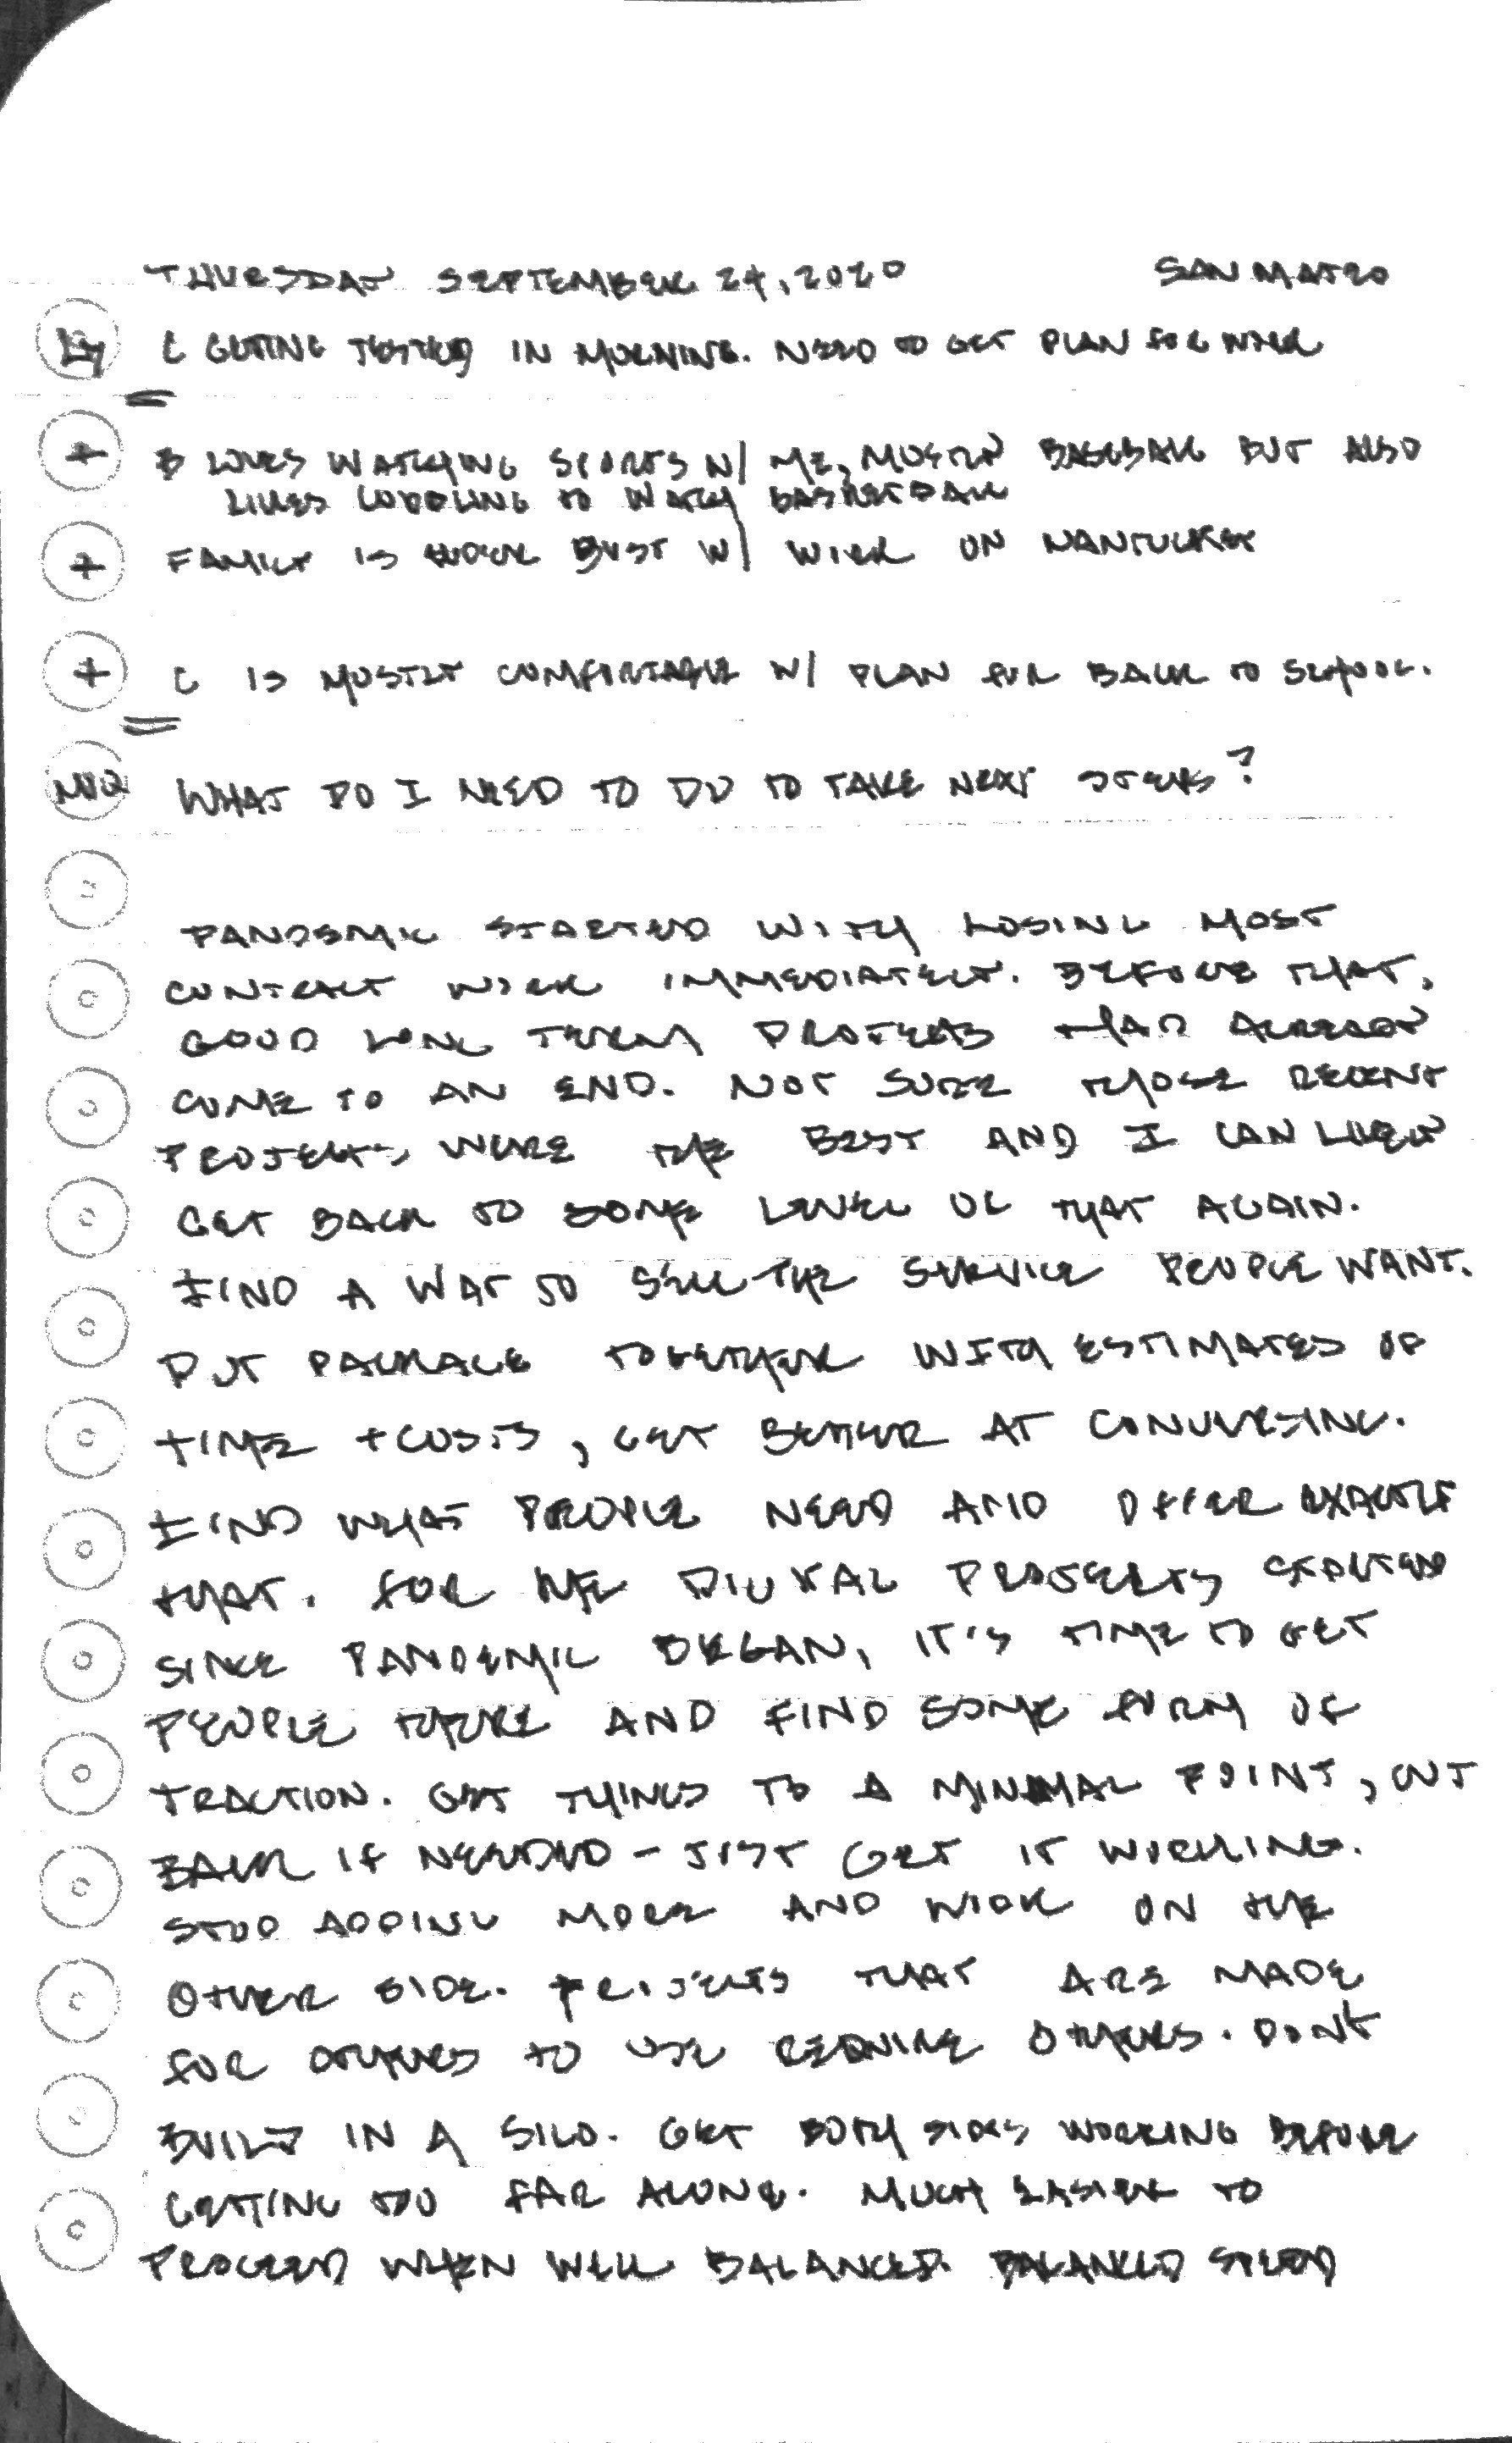 THURSDAY SEPTEMBER 24, 2020 SAN MATEO
C GETTING TESTED IN MORNING. NEED TO GET PLAN FOR WORK
+ B LOVES WATCHING SPORTS W/ ME, MOSTLY BASEBALL BUT ALSO
LIKES CUDDLING TO WATCH BASKETBALL
+ FAMILY IS BUSY W/ WORK ON NANTUCKET
+ C IS MOSTLY COMFORTABLE W/ PLAN FOR BACK TO SCHOOL.
WHAT DO I NEED TO DO TO TAKE NEXT STEPS?
PANDEMIC STARTED WITH LOSING MOST
CONTRACT WORK IMMEDIATELY. BEFORE THAT,
GOOD LONG TERM PROJECTS HAD ALREADY
COME TO AN END. NOT SURE THOSE RECENT
PROJECTS WERE THE BEST AND I CAN LIKELY
GET BACK TO SOME LEVEL OF THAT AGAIN.
FIND A WAY TO SELL THE SERVICE PEOPLE WANT.
PUT PACKAGE TOGETHER WITH ESTIMATES OF
TIME + COSTS, GET BETTER AT CONVERSING.
FIND WHAT PEOPLE NEED AND OFFER EXACTLY
THAT. FOR THE DIGITAL PROJECTS STARTED
SINCE PANDEMIC BEGAN, IT'S TIME TO GET
PEOPLE THERE AND FIND SOME FORM OF
TRACTION. GET THINGS TO A MINIMAL POINT, CUT
BACK IF NEEDED - JUST GET IT WORKING.
STOP ADDING MORE AND WORK ON THE
OTHER SIDE. PROJECTS THAT ARE MADE
FOR OTHERS TO USE REQUIRE OTHERS. DON'T
BUILD IN A SILO. GET BOTH SIDES WORKING BEFORE
GETTING TOO FAR ALONG. MUCH EASIER TO
PROCEED WHEN WELL BALANCED. BALANCED SPEED